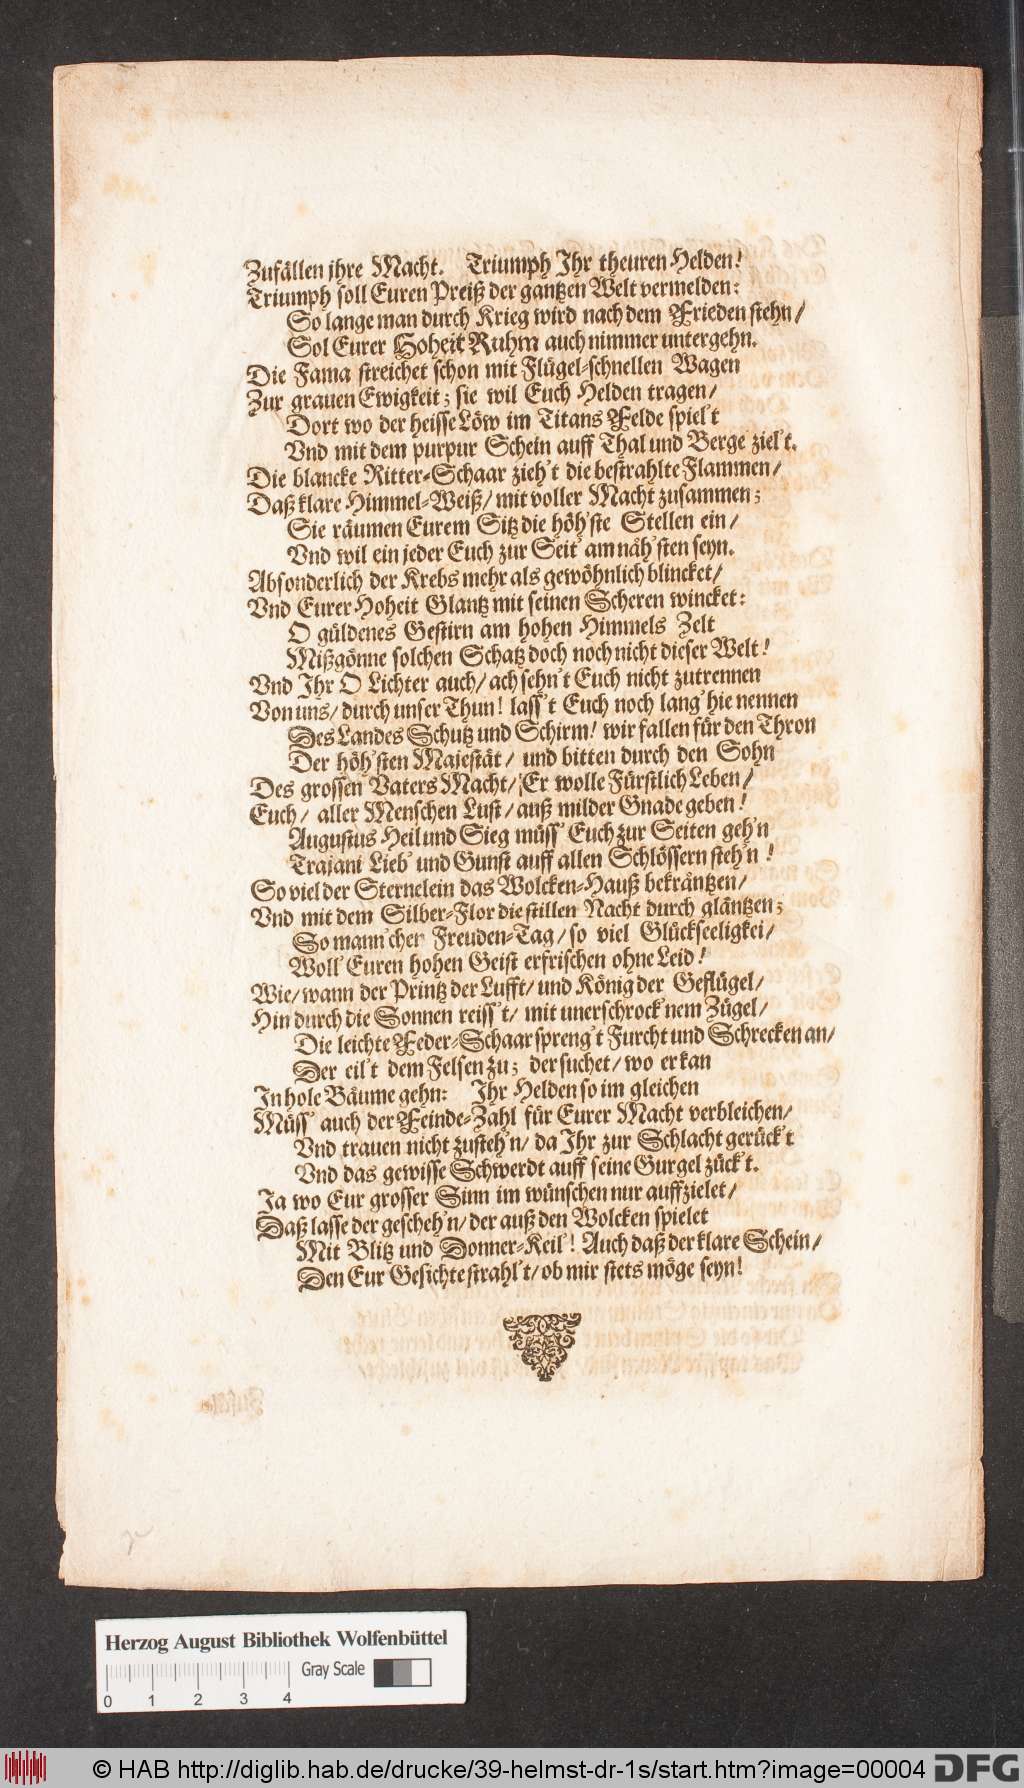 Zufällen jhre Macht. Triumph Ihr theuren Helden!
Triumph soll Euren Preiß der gantzen Welt vermelden:
So lange man durch Krieg wird nach dem Frieden stehn/
Sol Eurer Hoheit Ruhm auch nimmer untergehn.
Die Fama streichet schon mit Flügel-schnellen Wagen
Zur grauen Ewigkeit; sie wil Euch Helden tragen/
Dort wo der heisse Löw im Titans Felde spiel't
Vnd mit dem purpur Schein auff Thal und Berge ziel't.
Die blancke Ritter-Schaar zieh't die bestrahlte Flammen/
Daß klare Himmel-Weiß/ mit voller Macht zusammen;
Sie räumen Eurem Sitz die höh'ste Stellen ein/
Vnd wil ein jeder Euch zur Seit' am näh'sten seyn.
Absonderlich der Krebs mehr als gewöhnlich blincket/
Vnd Eurer Hoheit Glantz mit seinen Scheren wincket:
O güldenes Gestirn am hohen Himmels Zelt
Mißgönne solchen Schatz doch noch nicht dieser Welt!
Vnd Ihr O Lichter auch/ ach sehn't Euch nicht zutrennen
Von uns/ durch unser Thun! lass't Euch noch lang' hie nennen
Des Landes Schutz und Schirm! wir fallen für den Thron
Der höh'sten Majestät/ und bitten durch den Sohn
Des grossen Vaters Macht/ Er wolle Fürstlich Leben/
Euch/ aller Menschen Lust/ auß milder Gnade geben!
Augustus Heil und Sieg müss' Euch zur Seiten geh'n
Trajani Lieb' und Gunst auff allen Schlössern steh'n!
So viel der Sternelein das Wolcken-Hauß bekräntzen/
Vnd mit dem Silber-Flor die stillen Nacht durch gläntzen;
So mann'cher Freuden-Tag/ so viel Glückseeligkei/
Woll' Euren hohen Geist erfrischen ohne Leid!
Wie/ wann der Printz der Lufft/ und König der Geflügel/
Hin durch die Sonnen reiss't/ mit unerschrock'nem Zügel/
Die leichte Feder-Schaar spreng't Furcht und Schrecken an/
Der eil't dem Felsen zu; der suchet/ wo er kan
In hole Bäume gehn: Ihr Helden so im gleichen
Müss' auch der Feinde-Zahl für Eurer Macht verbleichen/
Vnd trauen nicht zusteh'n/ da Ihr zur Schlacht gerück't
Vnd das gewisse Schwerdt auff seine Gurgel zück't.
Ja wo Eur grosser Sinn im wünschen nur auffzielet/
Daß lasse der gescheh'n/ der auß den Wolcken spielet
Mit Blitz und Donner-Keil! Auch daß der klare Schein/
Den Eur Gesichte strahl't/ ob mir stets möge seyn!
Herzog August Bibliothek Wolfenbüttel
Gray Scale
0 1 2 3 4
© HAB http://diglib.hab.de/drucke/39-helmst-dr-1s/start.htm?image=00004 DFG